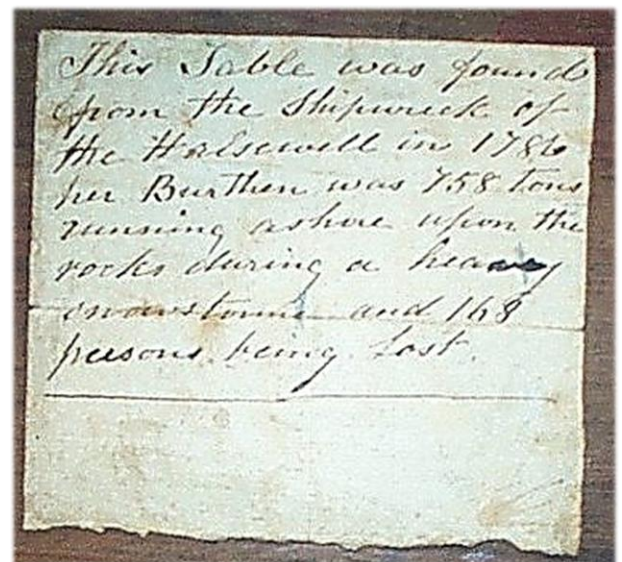 This Table was found
from the Shipwreck of
the Halsewell in 1786
her Burthen was 758 tons
running ashore upon the
rocks during a heavy
snowstorm and 168
persons being lost.